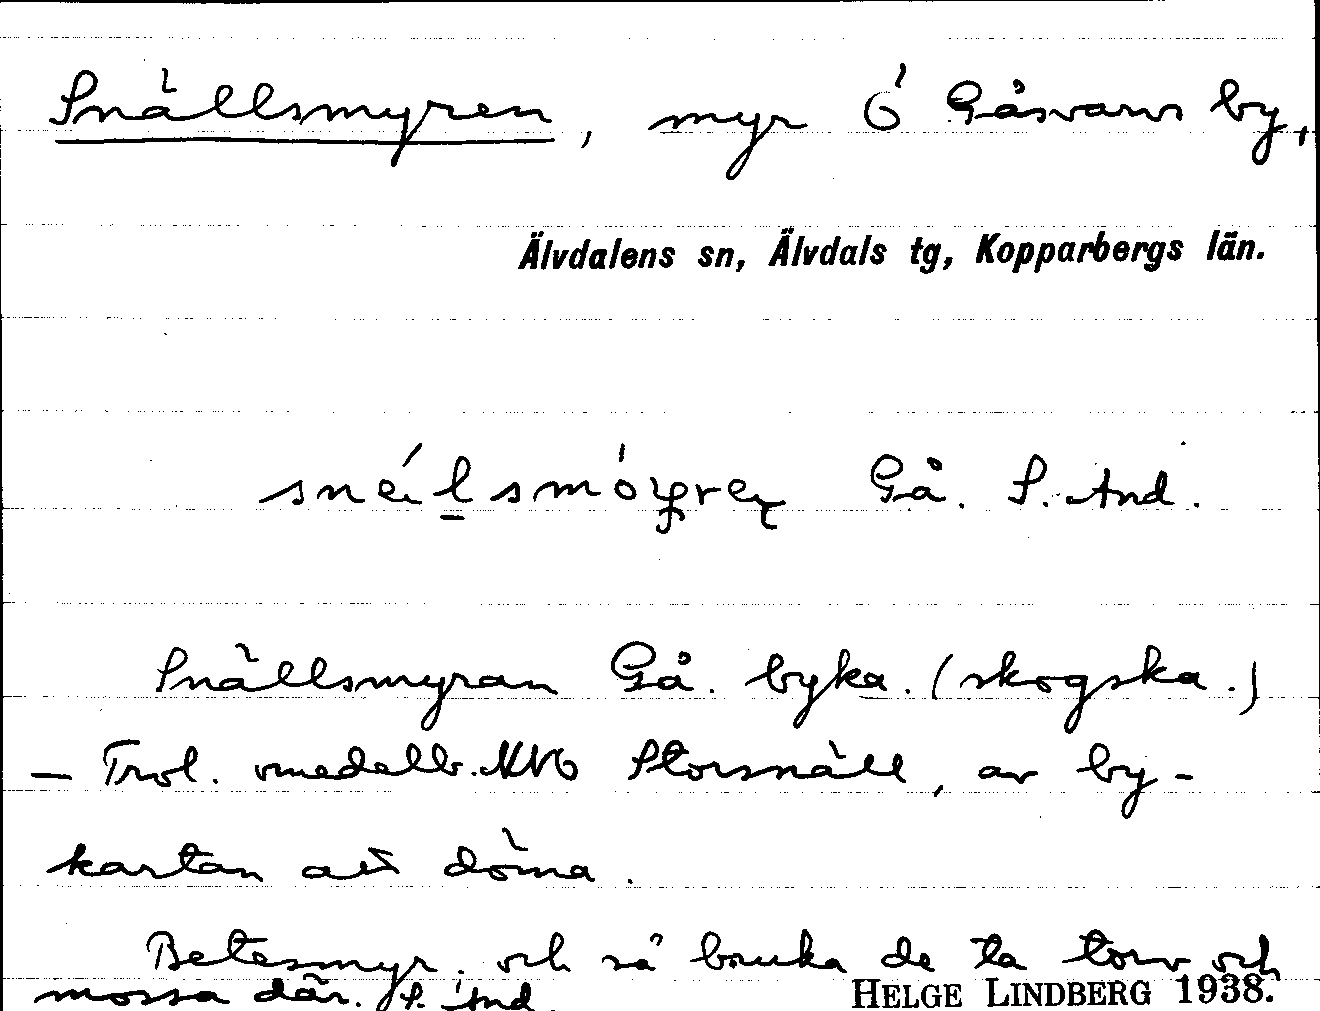 Snällsmyren, myr Ö Gåsvarvs by,
Älvdalens sn, Älvdals tg, Kopparbergs län.
Gå. S. And.
Snällsmyran Gå. byka. (skogska.)
— Trol. omedelb. NNO Storsnäll, av by-
kartan att döma.
Betesmyr. och så bruka de ta torv och
mossa där. S. And.
HELGE LINDBERG 1938.